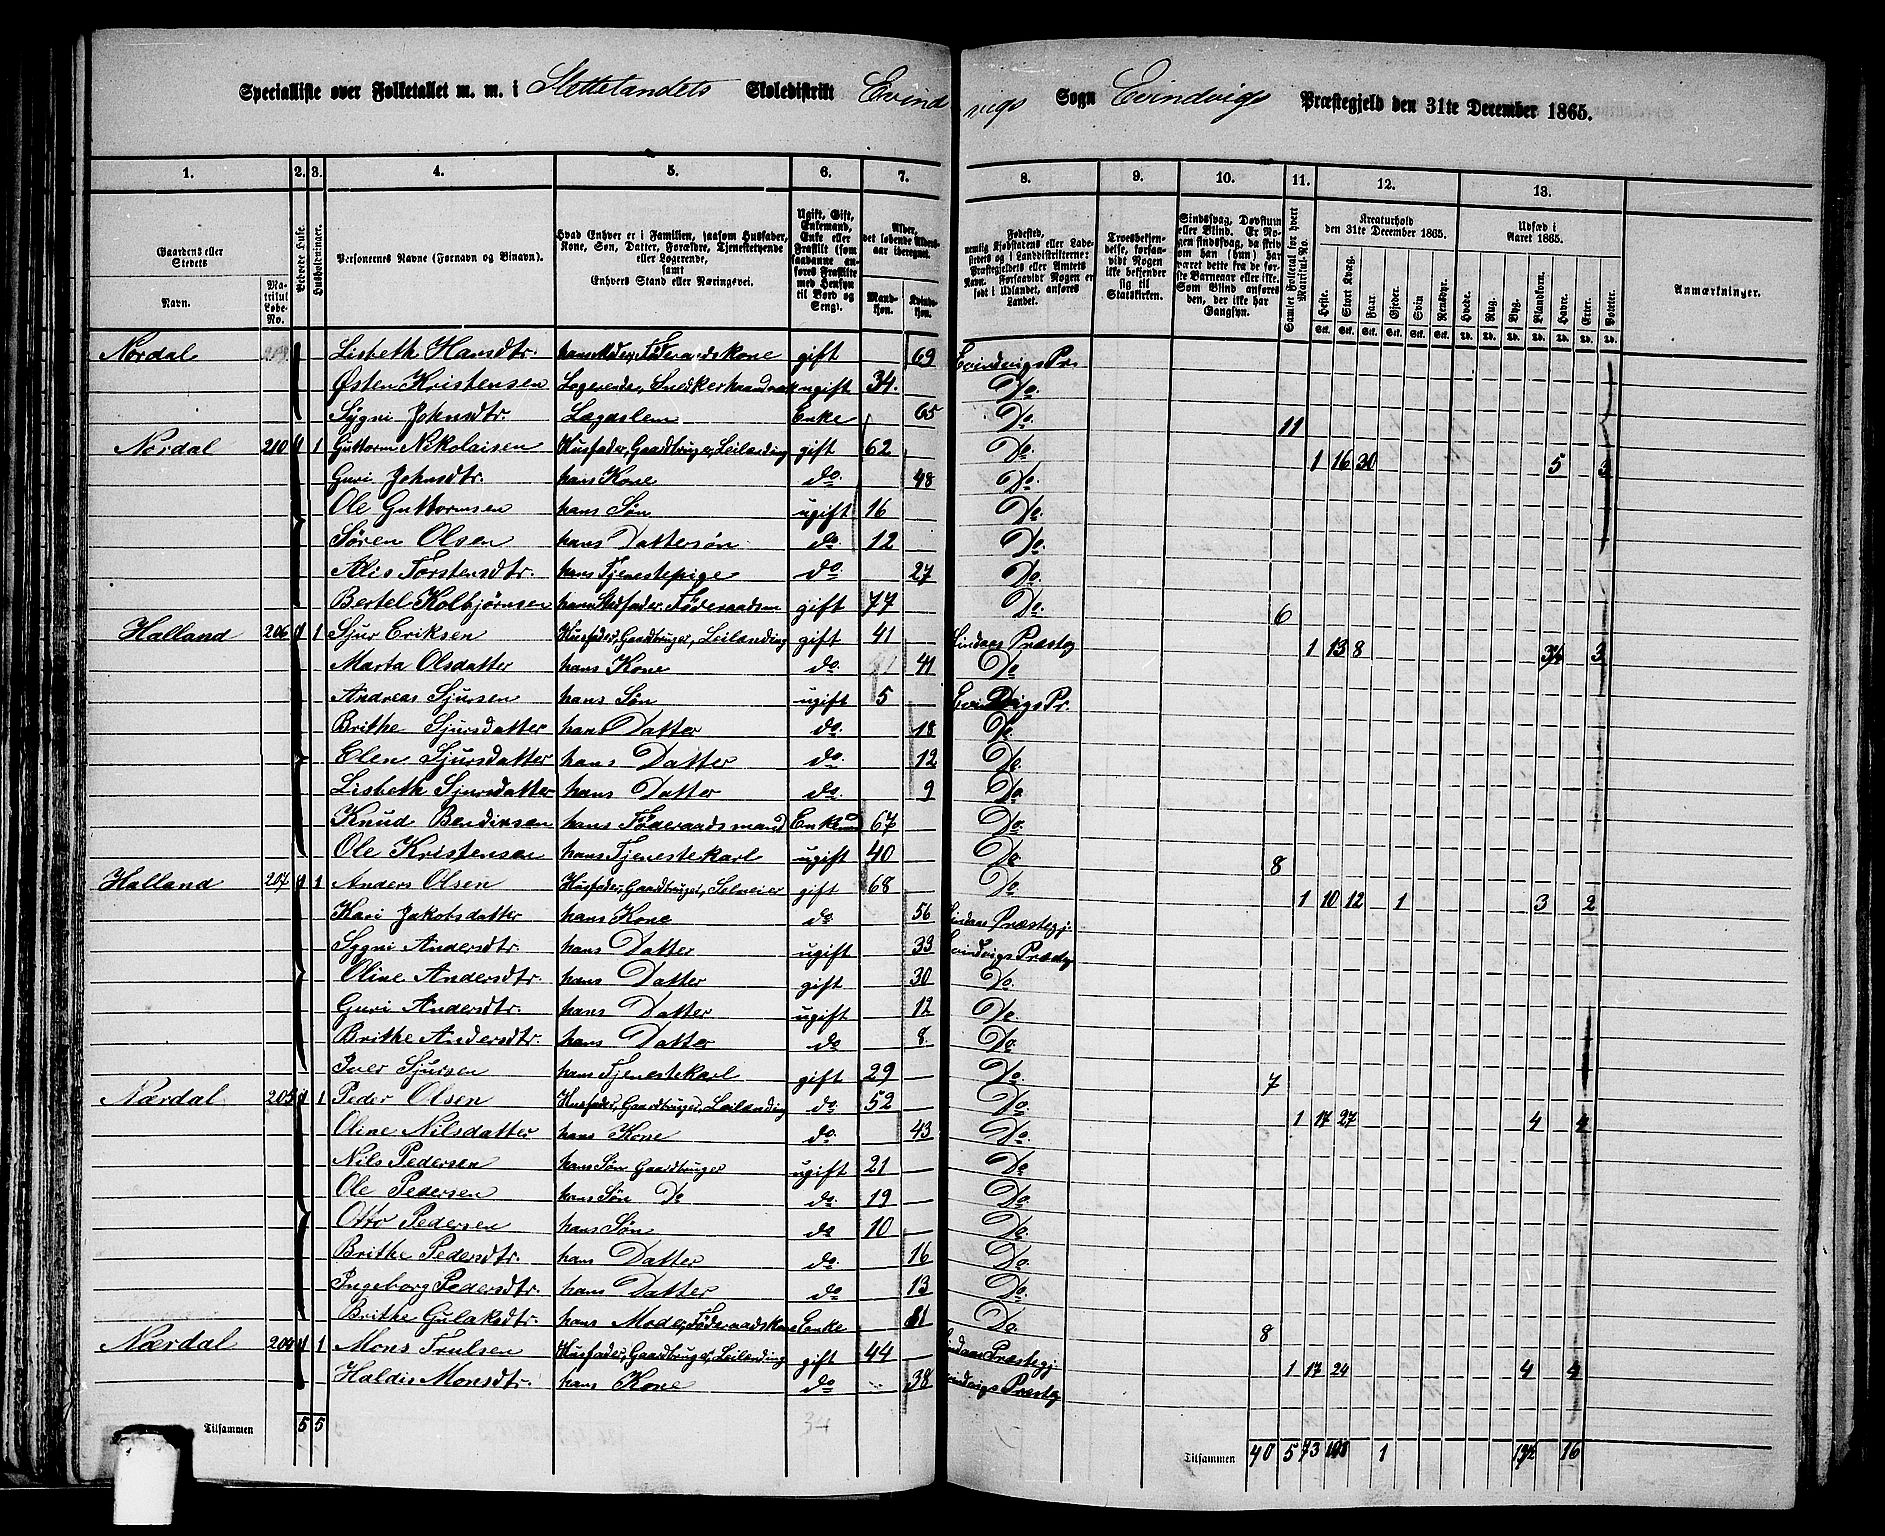 Specialliste over Folketallet m. m. i Slettelandets Skoledistrikt Evindvigs Sogn Evindvigs Præstegjeld den 31te December 1865.
1. 2. 3. 4. 5. 6. 7. 8. 9. 10. 11. 12. 13.
Gaardens eller Stedets Navn. Matrikul Løbe-No. Beboede Huse. Husholdninger. Personernes Navne (Fornavn og Binavn). Hvad Enhver er i Familien, saasom Husfader, Kone, Søn, Datter, Forældre, Tjenestetyende eller Logerende, samt Enhvers Stand eller Næringsvei. Ugift, Gift, Enkemand, Enke eller Fraskilt (som saadanne anføres Fraskilte med Hensyn til Bord og Seng). Alder, det løbende Aldersaar iberegnet. Mandkjøn. Kvindekjøn.
Fødested, nemlig Kjøbstadens eller Ladestedets eller i Landdistrikterne: Præstegjeldets eller Amtets Navn. Forsaavidt Nogen er født i Udlandet, anføres Landet. Troesbekjendelse, forsaavidt Nogen ikke bekjender sig til Statskirken. Sindssvag, Døvstum eller Blind. Er Nogen sindssvag, da skriv om han (hun) har været dette fra de første Barneaar eller ikke. Som Blind anføres den, der ikke har Gangsyn. Samlet Folketal for hvert Matrikul-No. Kreaturhold den 31te December 1865. Heste. Stort Kvæg. Faar. Gjeder. Svin. Rensdyr. Udsæd i Aaret 1865. Hvede. Rug. Byg. Blandkorn. Havre. Erter. Poteter. Anmærkninger.
Nordal Lisbeth Hansdtr. hans Moder, Føderaadskone gift 69 Evindvigs Pr.
Østen Kristensen Logerende, Snedkerhaandværk ugift 34. Do.
Sygni Johnsdtr. Lægdslem Enke 65 Do. 11
Nordal 210 1 1 Guttorm Nikolaisen Husfader, Gaardbruger, Leilænding gift 62 Do. 1 16 30 5 5
Guri Johnsdtr. hans Kone do. 48 Do.
Ole Guttormsen hans Søn ugift 16 Do.
Søren Olsen hans Dattersøn do. 12 Do.
Alis Torstensdtr. hans Tjenestepige do. 27 Do.
Bertel Kolbjørnsen hans Stedfader, Føderaadsm gift 77 Do. 6
Halland 206 1 1 Sjur Eriksen Husfader, Gaardbruger, Leilænding gift 41 Lindaas Præstg 1 13 8 3½ 3
Marta Olsdatter hans Kone do. 41 Do
Andreas Sjursen hans Søn ugift 5 Evindvigs Pr.
Brithe Sjursdatter hans Datter do. 18 Do
Elen Sjursdatter hans Datter do. 12 Do.
Lisbeth Sjursdatter hans Datter do. 9 Do
Knud Bendixsen hans Føderaadsmand Enkem 67 Do.
Ole Kristensen hans Tjenestekarl ugift 40 Do 8
Halland 207 1 1 Anders Olsen Husfader, Gaardbruger, Selveier gift 68 Do 1 10 12 1 3 2
Kari Jakobsdatter hans Kone do 56 Lindaas Præstegj.
Sygni Andersdtr. hans Datter ugift 33 Evindvigs Præstg
Oline Andersdtr. hans Datter gift 30 Do.
Guri Andersdtr. hans Datter ugift 12 Do
Brithe Andersdtr. hans Datter do 8. Do.
Iver Sjursen hans Tjenestekarl gift 29 Do. 7
Nærdal 205 1 1 Peder Olsen Husfader, Gaardbruger, Leilænding do 52 Do. 1 17 27 4 4
Oline Nilsdatter hans Kone do. 43 Do.
Nils Pedersen hans Søn Gaardbruger ugift 21 Do
Ole Pedersen hans Søn Do do. 19 Do.
Otto Pedersen hans Søn do 10 Do.
Brithe Pedersdtr. hans Datter do. 16 Do.
Ingeborg Pedersdtr. hans Datter do 13 Do.
Brithe Gulaksdtr. hans Moder, Føderaadskone Enke 81 Do. 8
Nærdal 204 1 1 Mons Trulsen Husfader, Gaardbruger, Leilænding gift 44 Lindaas Præstegj 1 17 24 4 4
Haldis Monsdtr. hans Kone do 38 Evindvigs Præstg
Tilsammen 5 5 Tilsammen 40 5 73 101 1 19½ 16